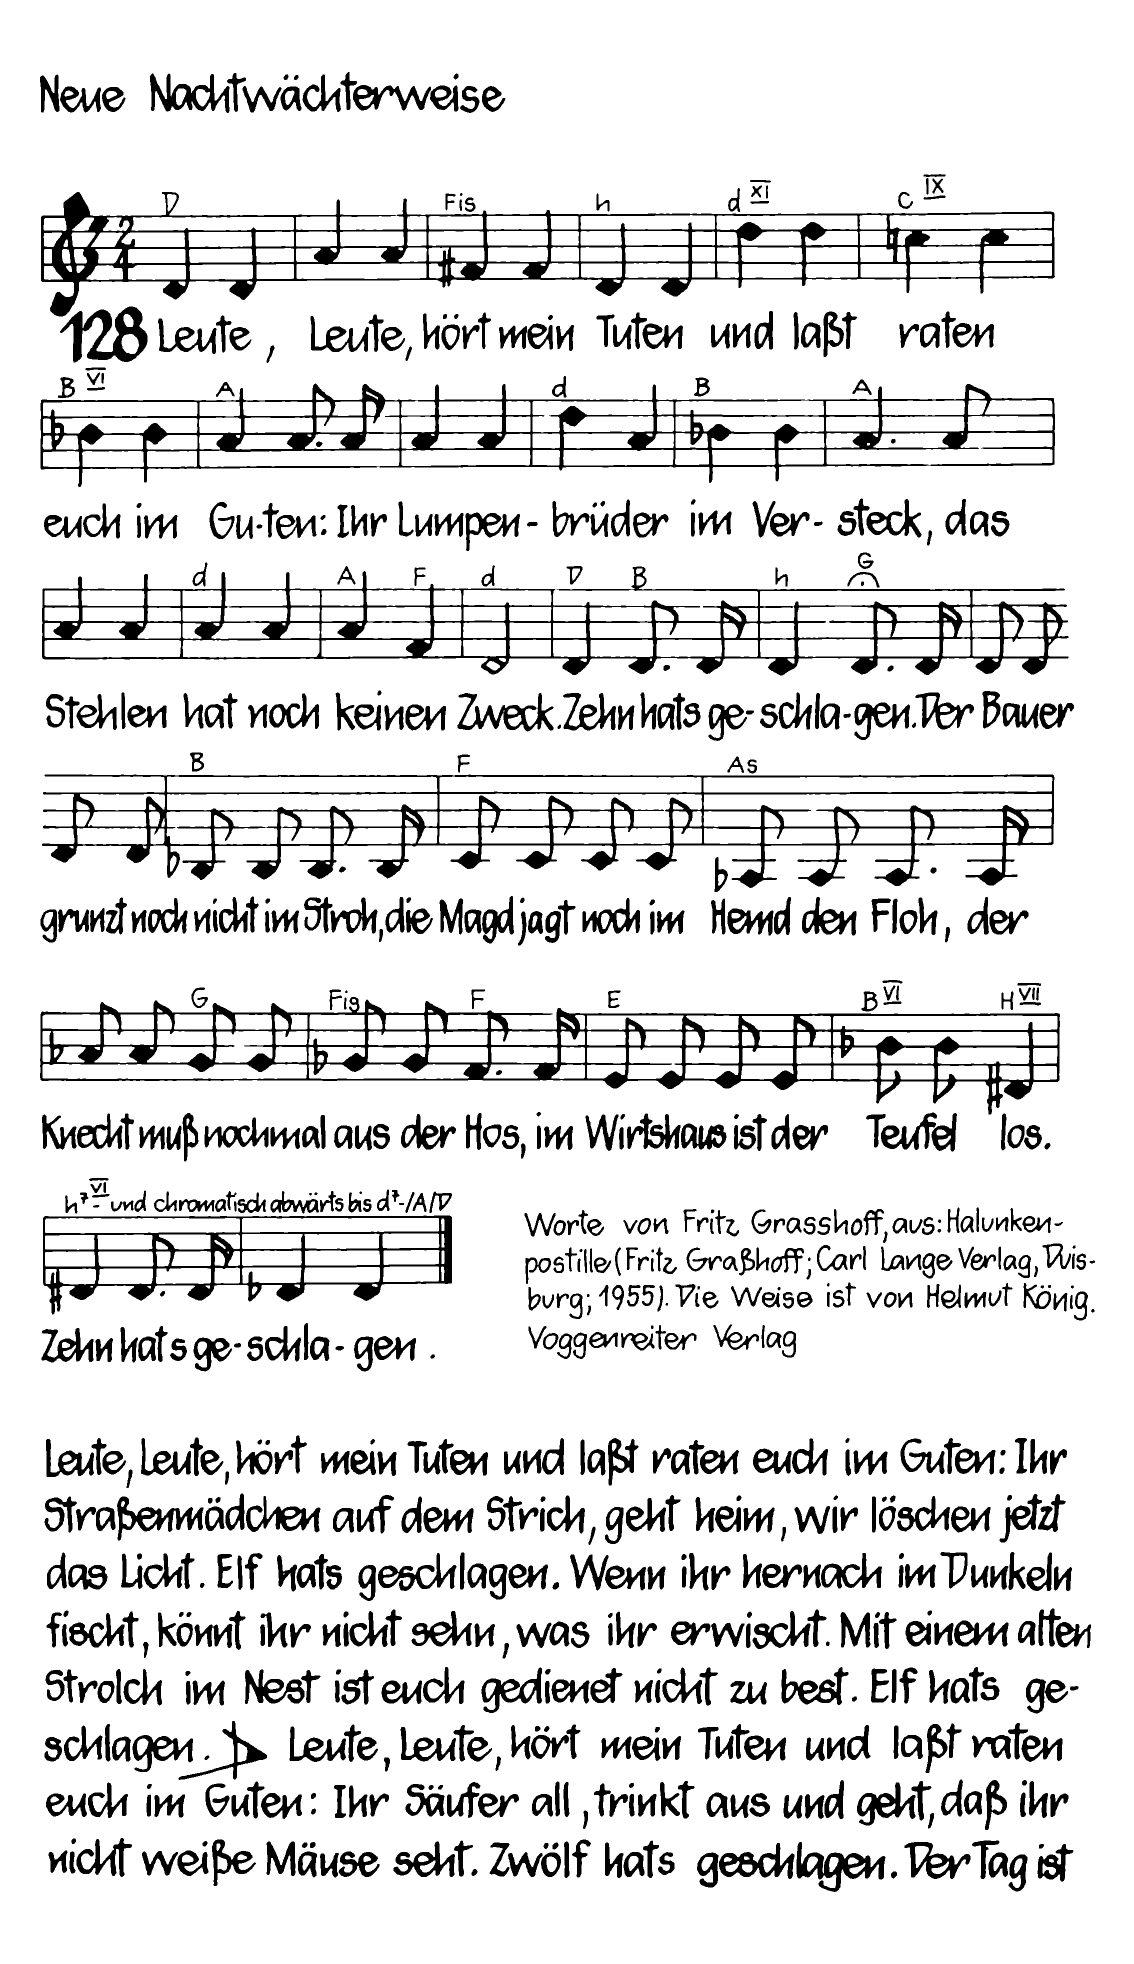 Neue Nachtwächterweise
D Fis h d XI C IX
2
4
128 Leute, Leute, hört mein Tuten und laßt raten
B VI A d B A
euch im Gu-ten: Ihr Lumpen-brüder im Ver-steck, das
d A F d D B h G
Stehlen hat noch keinen Zweck. Zehn hats ge-schla-gen. Der Bauer
B F As
grunzt noch nicht im Stroh, die Magd jagt noch im Hemd den Floh, der
G Fis F E B VI H VII
Knecht muß nochmal aus der Hos, im Wirtshaus ist der Teufel los.
h7 VI - und chromatisch abwärts bis d7-/A/D
Zehn hats ge-schla-gen.
Worte von Fritz Grasshoff, aus: Halunken-
postille (Fritz Graßhoff; Carl Lange Verlag, Duis-
burg; 1955). Die Weise ist von Helmut König.
Voggenreiter Verlag
Leute, Leute, hört mein Tuten und laßt raten euch im Guten: Ihr
Straßenmädchen auf dem Strich, geht heim, wir löschen jetzt
das Licht. Elf hats geschlagen. Wenn ihr hernach im Dunkeln
fischt, könnt ihr nicht sehn, was ihr erwischt. Mit einem alten
Strolch im Nest ist euch gedienet nicht zu best. Elf hats ge-
schlagen. Leute, Leute, hört mein Tuten und laßt raten
euch im Guten: Ihr Säufer all, trinkt aus und geht, daß ihr
nicht weiße Mäuse seht. Zwölf hats geschlagen. Der Tag ist